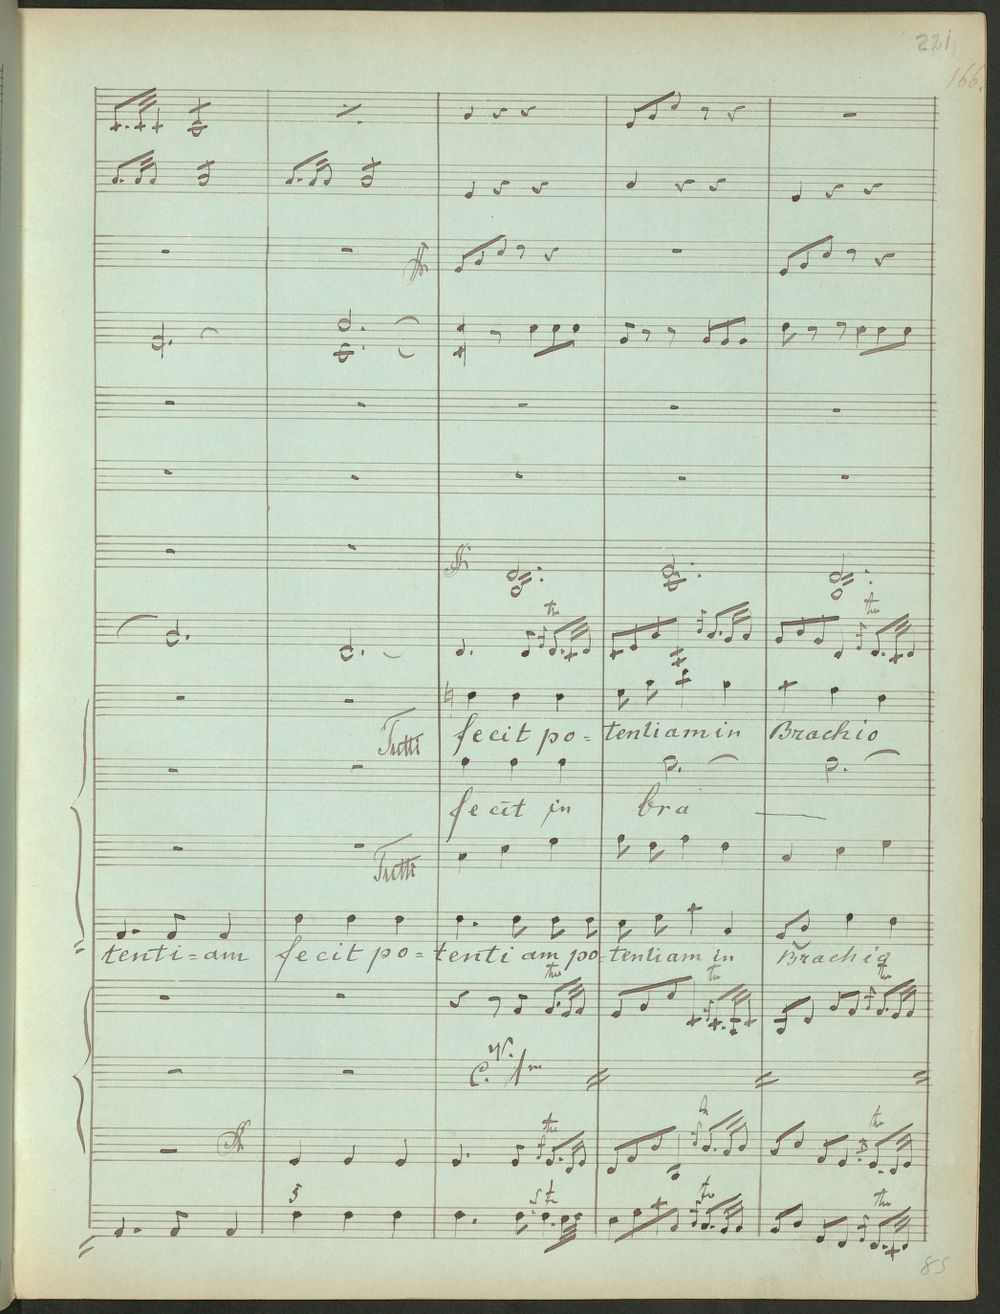 221
166.
tr
tr
Tutti
fecit po = tentiam in Brachio
fecit in bra
Tutti
tenti = am fecit po = tenti am po = tentiam in Brachio
tr
tr
tr
C. 1mo
tr
tr
5
tr
tr
tr
85